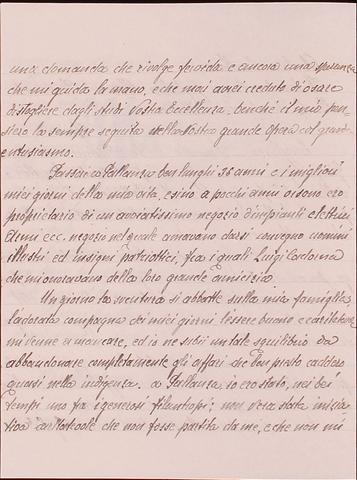 una domanda che rivolge fervida e ancora una speranza
che mi guida la mano, e che mai avrei creduto di osare
distogliere dagli studi Vostra Eccellenza, benché il mio pen-
siero la sempre seguita nella Vostra grande Opera col grande
entusiasmo.
Passai a Pallanza ben lunghi 36 anni e i migliori
miei giorni della mia vita, e sino a pochi anni or sono ero
proprietario di un avviatissimo negozio d'impianti elettrici
Armi ecc. negozio nel quale amavano darsi convegno uomini
illustri ed insigni patriottici, fra i quali Luigi Cadorna
che mi onoravano della loro grande amicizia.
Un giorno la sventura si abbatte sulla mia famiglia,
l'adorata compagna dei miei giorni l'essere buono e caritatevole
mi venne a mancare, ed io ne subii un tale squilibrio da
abbandonare completamente gli affari che ben presto caddero
quasi nella indigenza. a Pallanza, io ero stato, nei bei
tempi uno fra i generosi filantropi: non v'era stata inizia-
tiva che non fosse partita da me, e che non mi